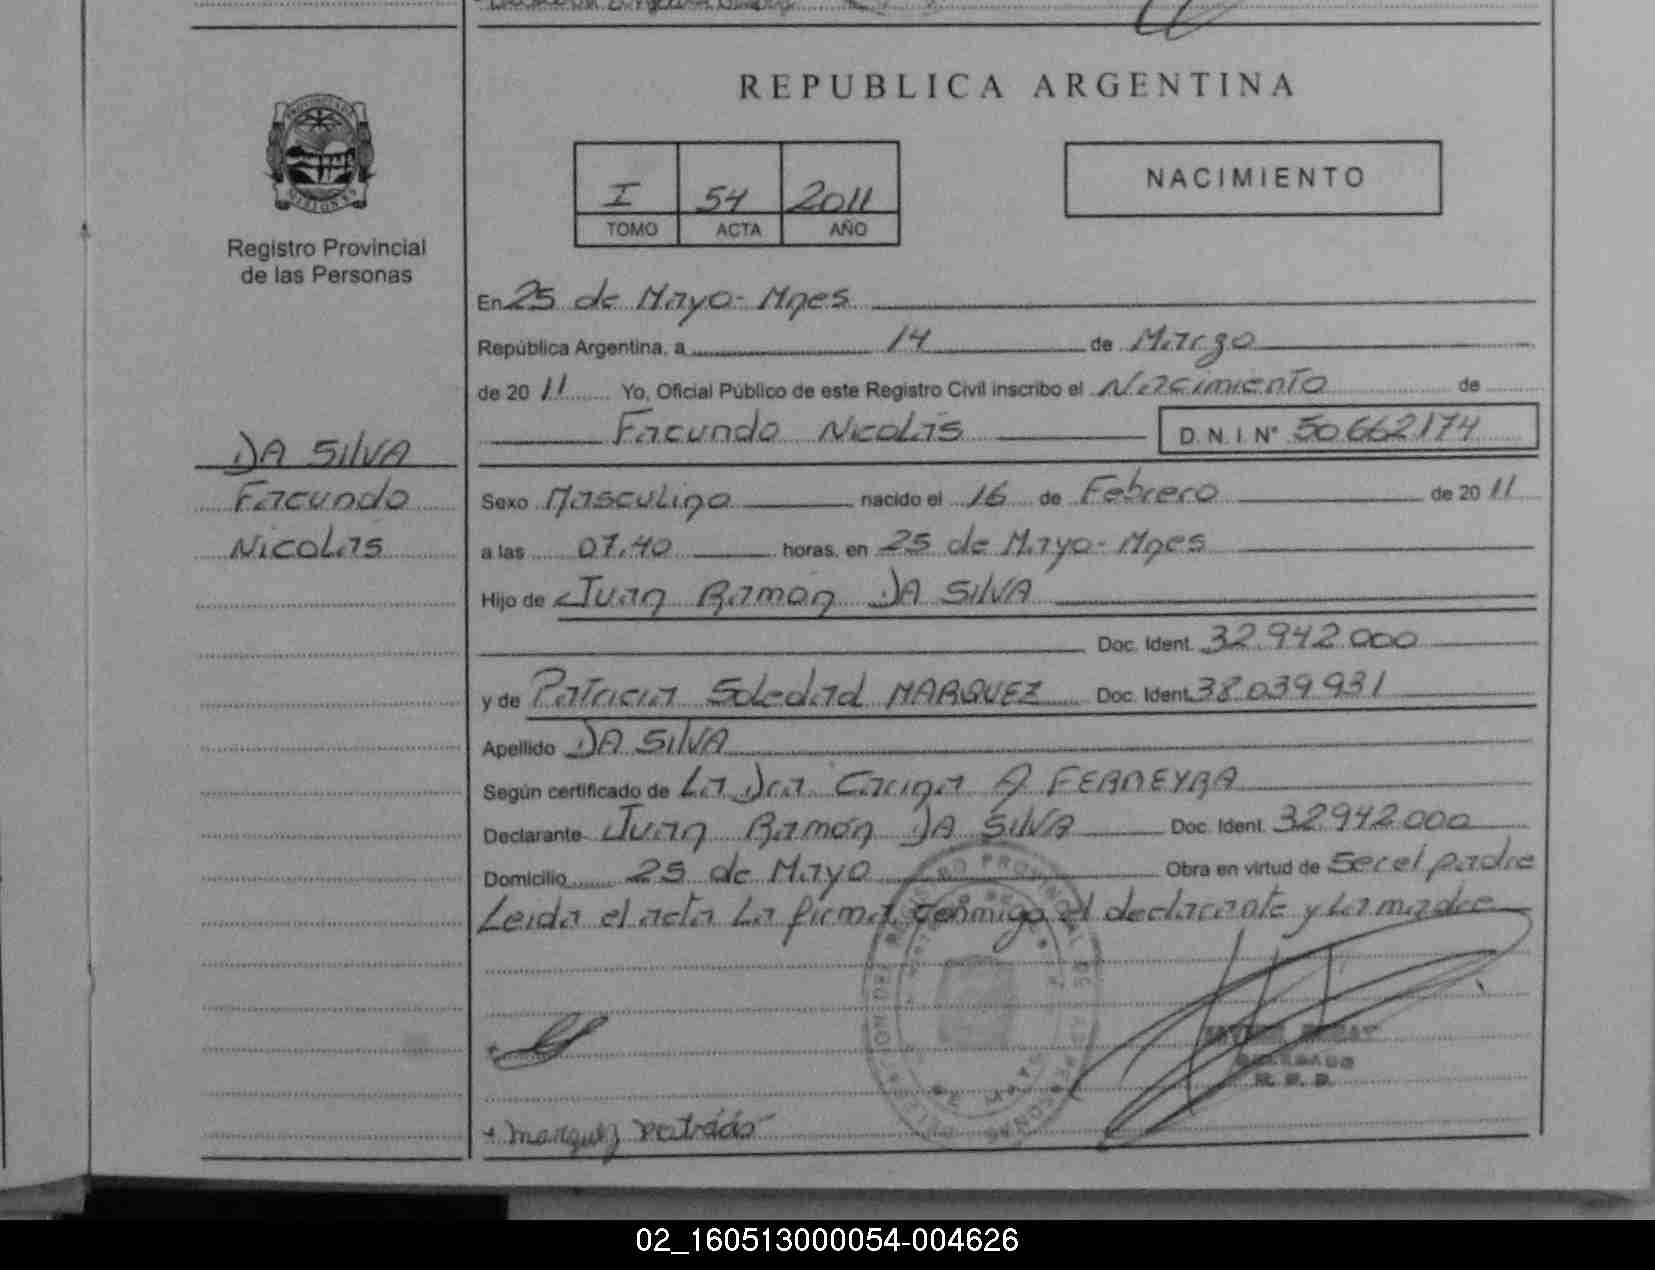 REPUBLICA ARGENTINA
I 54 2011
TOMO ACTA AÑO
NACIMIENTO
Registro Provincial
de las Personas
En 25 de Mayo - Mnes
República Argentina, a 14 de Marzo
de 20 11 Yo, Oficial Público de este Registro Civil inscribo el Nacimiento de
Facundo Nicolás D.N.I. N° 50.662.174
DA SILVA
Facundo
Nicolás
Sexo Masculino nacido el 16 de Febrero de 20 11
a las 07.40 horas, en 25 de Mayo - Mnes
Hijo de Juan Ramón DA SILVA
Doc. Ident. 32.942.000
y de Patricia Soledad MARQUEZ Doc. Ident. 38.039.931
Apellido DA SILVA
Según certificado de La Dra. Carina A FERREYRA
Declarante Juan Ramón DA SILVA Doc. Ident. 32.942.000
Domicilio 25 de Mayo Obra en virtud de Ser el padre
Leida el acta La firma conmigo el declarante y La madre
DELEGADO
R. P. P.
Marquez
02_160513000054-004626